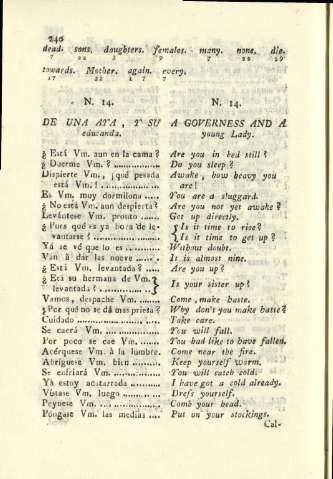 240
dead. sons. daughters. females. many. none. die.
7 22 3 9 7 22 29
towards. Mother. again. every.
17 22 1 7
N. 14.
DE UNA AYA, Y SU
educanda.
¿ Está Vm. aun en la cama ?
¿ Duerme Vm. ?
Dispierte Vm., ¡ qué pesada
está Vm. !
Es Vm. muy dormilona
¿ No está Vm. aun despierta ?
Levántese Vm. pronto
¿ Pues qué es ya hora de le-
vantarse ?
Yá se vé que lo es
Van á dar las nueve
¿ Está Vm. levantada ?
¿ Está su hermana de Vm.
levantada ?
Vamos, despache Vm.
¿ Por qué no se dá mas prieta ?
Cuidado
Se caerá Vm.
Por poco se cae Vm.
Acérquese Vm. á la lumbre.
Abríguese Vm. bien
Se enfriará Vm.
Yá estoy acatarrada
Vístase Vm. luego
Peynese Vm.
Póngase Vm. las medias
N. 14.
A GOVERNESS AND A
young Lady.
Are you in bed still ?
Do you sleep ?
Awake, how heavy you
are!
You are a sluggard.
Are you not yet awake ?
Get up directly.
Is it time to rise?
Is it time to get up ?
Without doubt.
It is almost nine.
Are you up ?
Is your sister up ?
Come, make haste.
Why don't you make haste ?
Take care.
You will fall.
You had like to have fallen.
Come near the fire.
Keep yourself warm.
You will catch cold.
I have got a cold already.
Dress yourself.
Comb your head.
Put on your stockings.
Cal-